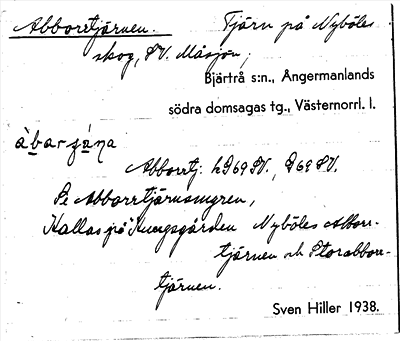 Abborrtjärnen. Tjärn på Nyböles
skog, SV. Måsjön;
Bjärtrå s:n., Ångermanlands
södra domsagas tg., Västernorrl. l.
Abborrtj: hD69SV., D69 SV.
Se Abborrtjärnsmyren,
Kallas på Kungsgården Nyböles Abborr-
tjärnen och Storabborr-
tjärnen.
Sven Hiller 1938.